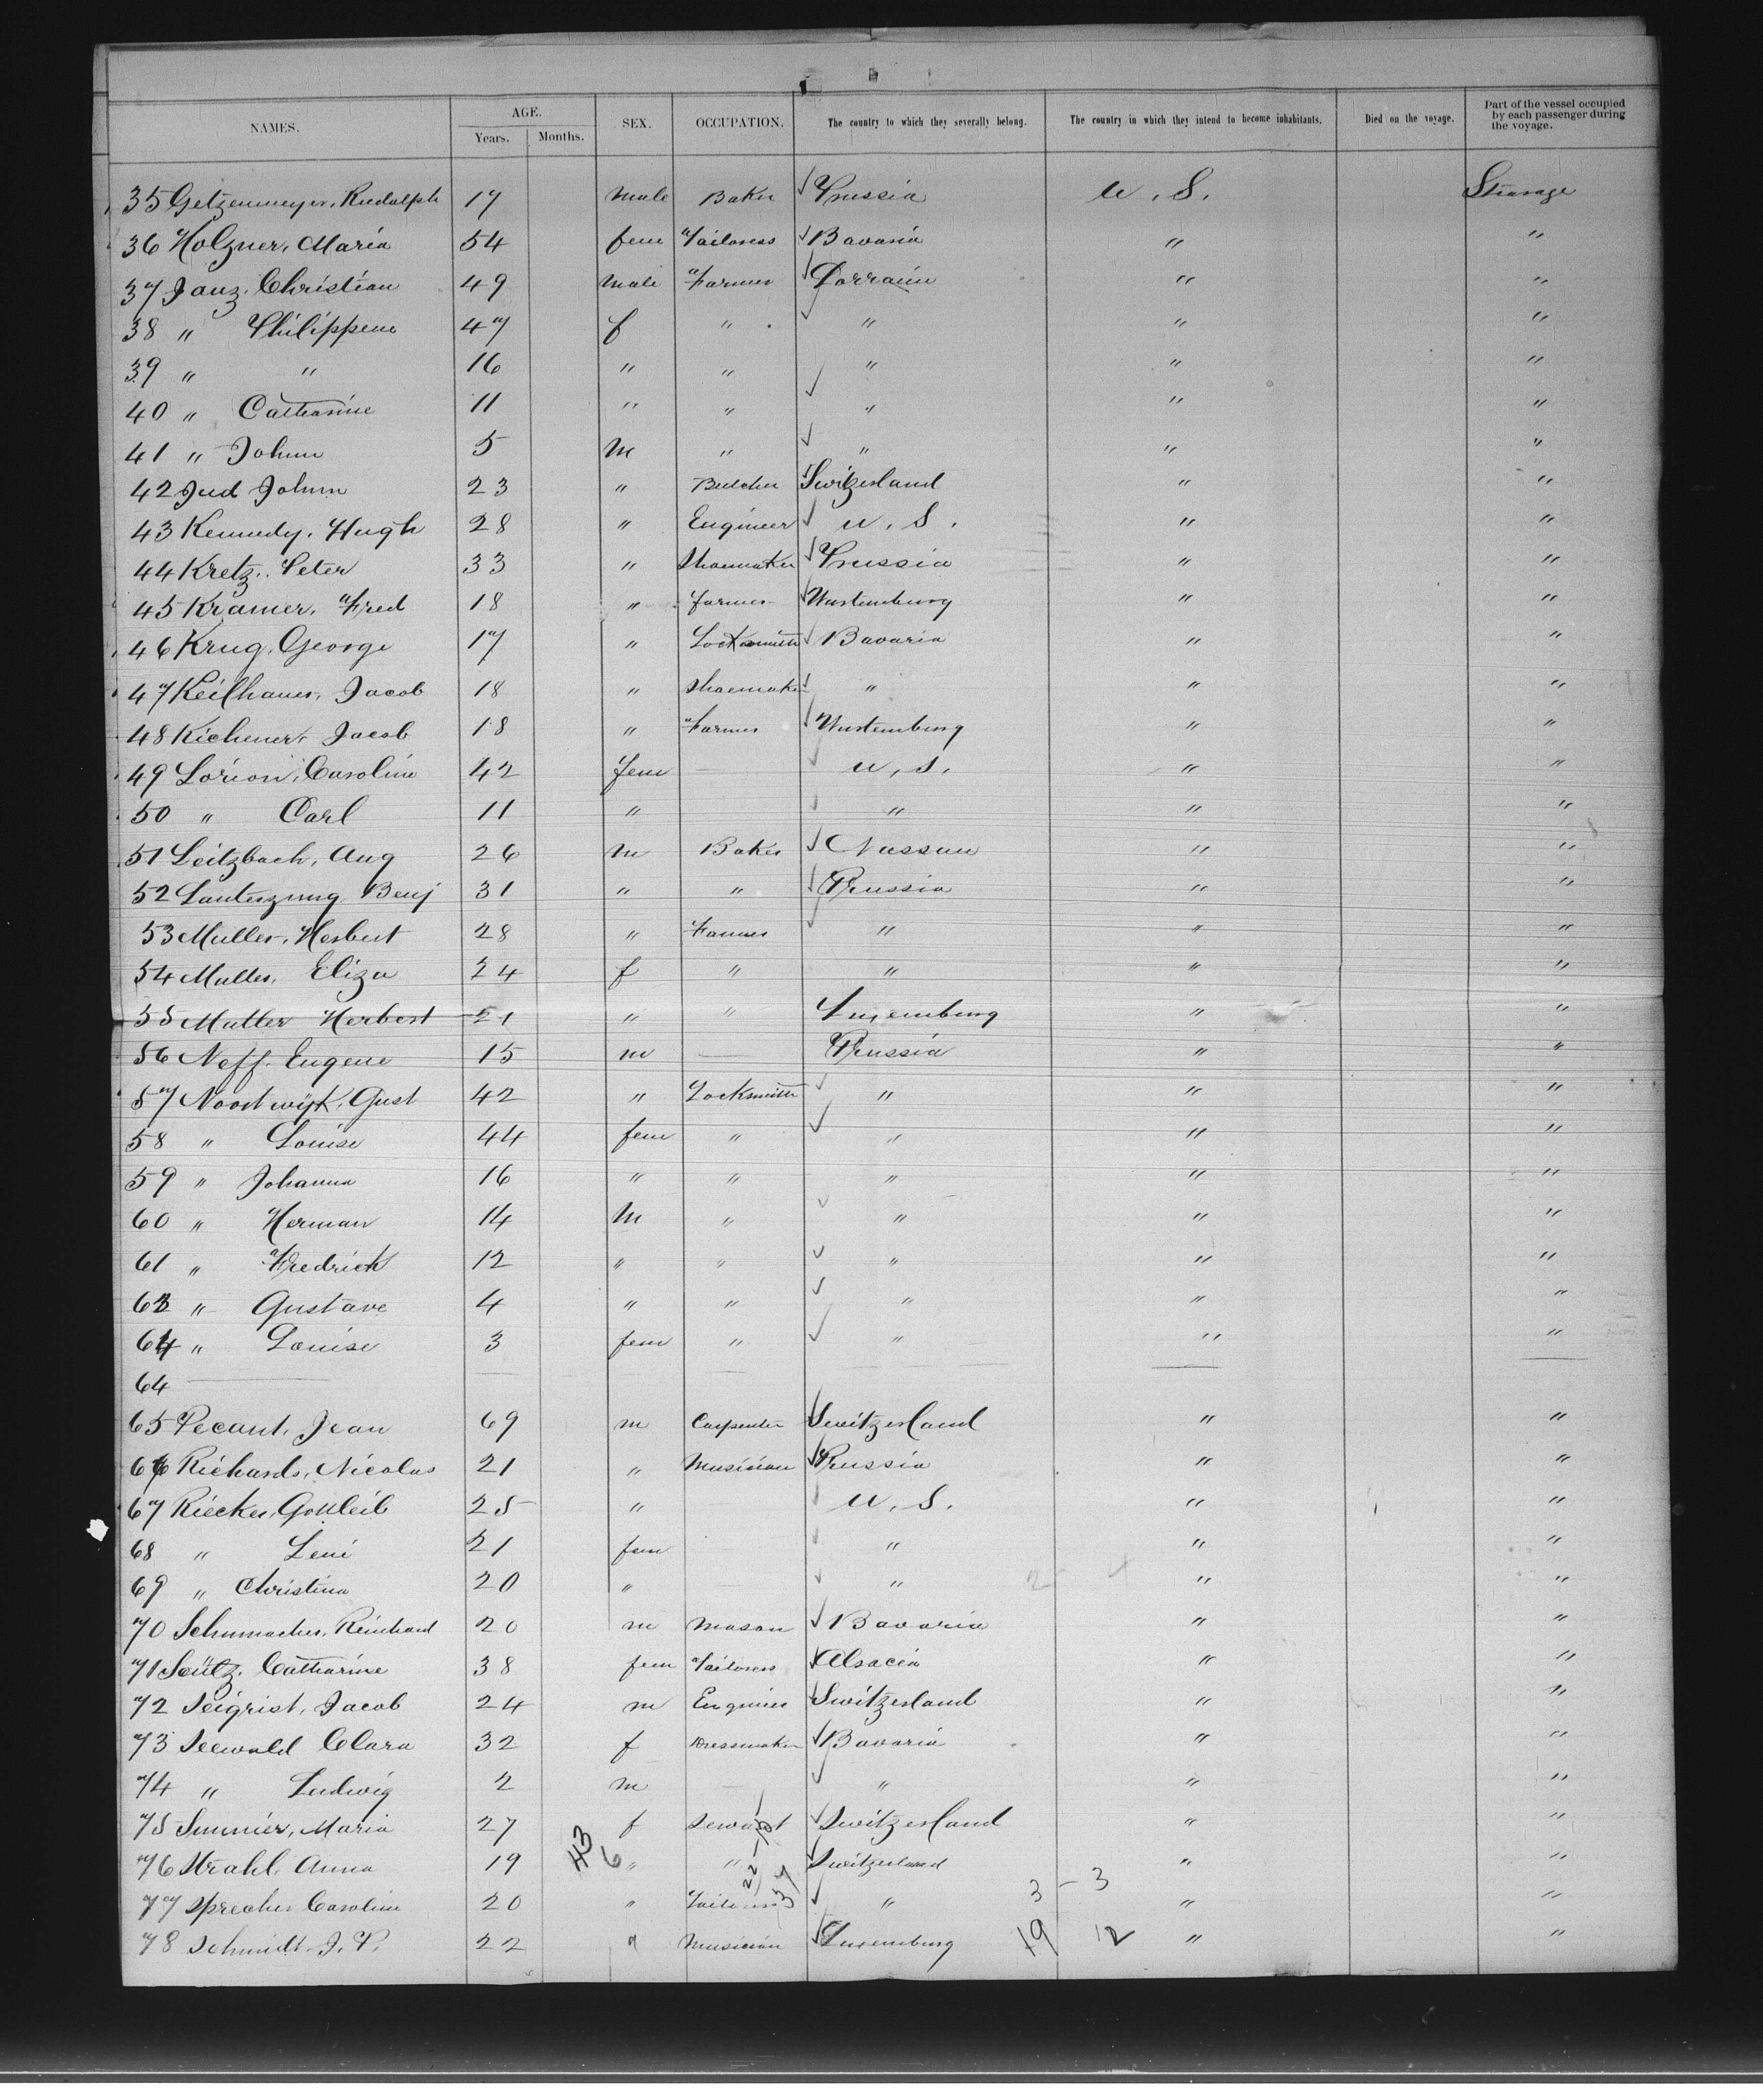 NAMES. AGE. SEX. OCCUPATION. The country to which they severally belong. The country in which they intend to become inhabitants. Died on the voyage. Part of the vessel occupied by each passenger during the voyage.
Years. Months.
35 Getzenmeyer, Rudolph 17 male Baker Prussia U. S. Steerage
36 Holzner, Maria 54 fem Tailoress Bavaria " "
37 Janz, Christian 49 male Farmer Lorraine " "
38 " Philippene 47 f " " " "
39 " " 16 " " " " "
40 " Catharine 11 " " " " "
41 " Johnn 5 m " " " "
42 Jud Johnn 23 " Butcher Switzerland " "
43 Kennedy, Hugh 28 " Engineer U. S. " "
44 Kretz, Peter 33 " Shoemaker Prussia " "
45 Kramer, Fred 18 " farmer Wurtemburg " "
46 Krug, George 17 " Locksmith Bavaria " "
47 Keilhauer, Jacob 18 " Shoemaker " " "
48 Kichener, Jacob 18 " Farmer Wurtemburg " "
49 Lorion, Caroline 42 fem — U. S. " "
50 " Carl 11 " " " "
51 Leitzbach, Aug 26 m Baker Nassau " "
52 Lauterzung Benj 31 " " Prussia " "
53 Muller, Herbert 28 " Farmer " " "
54 Muller, Eliza 24 f " " " "
55 Muller Herbert 21 " " Luxemburg " "
56 Neff, Eugene 15 m — Prussia " "
57 Noortwijk, Gust 42 " Locksmith " " "
58 " Louise 44 fem " " " "
59 " Johanna 16 " " " " "
60 " Herman 14 m " " " "
61 " Fredrick 12 " " " " "
63 " Gustave 4 " " " " "
64 " Louise 3 fem " " " "
64 — — — — — —
65 Pecant, Jean 69 m Carpenter Switzerland " "
66 Richards, Nicolas 21 " Musician Prussia " "
67 Riecker, Gottleib 25 " U. S. " "
68 " Leni 21 fem " " "
69 " Christina 20 " " " "
70 Schumacher, Reinhard 20 m Mason Bavaria " "
71 Seütz, Catharine 38 fem Tailoress Alsacia " "
72 Seigrist, Jacob 24 m Engineer Switzerland " "
73 Seewald Clara 32 f Dressmaker Bavaria " "
74 " Ludwig 2 m — " " "
75 Summer, Maria 27 f Switzerland " "
76 Strahl, Anna 19 " " Switzerland " "
77 Sprecher Caroline 20 " Tailoress " 3 – 3 " "
78 Schmidt, J. P. 22 " Musician Luxemburg 19 12 " "